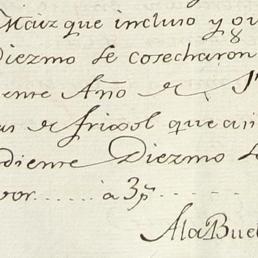 Maiz que incluso y ou
Diezmo se cosecharon
ente Año de
as de frixol que asi
diente Diezmo se
vor ..... a 3p
A la Buel